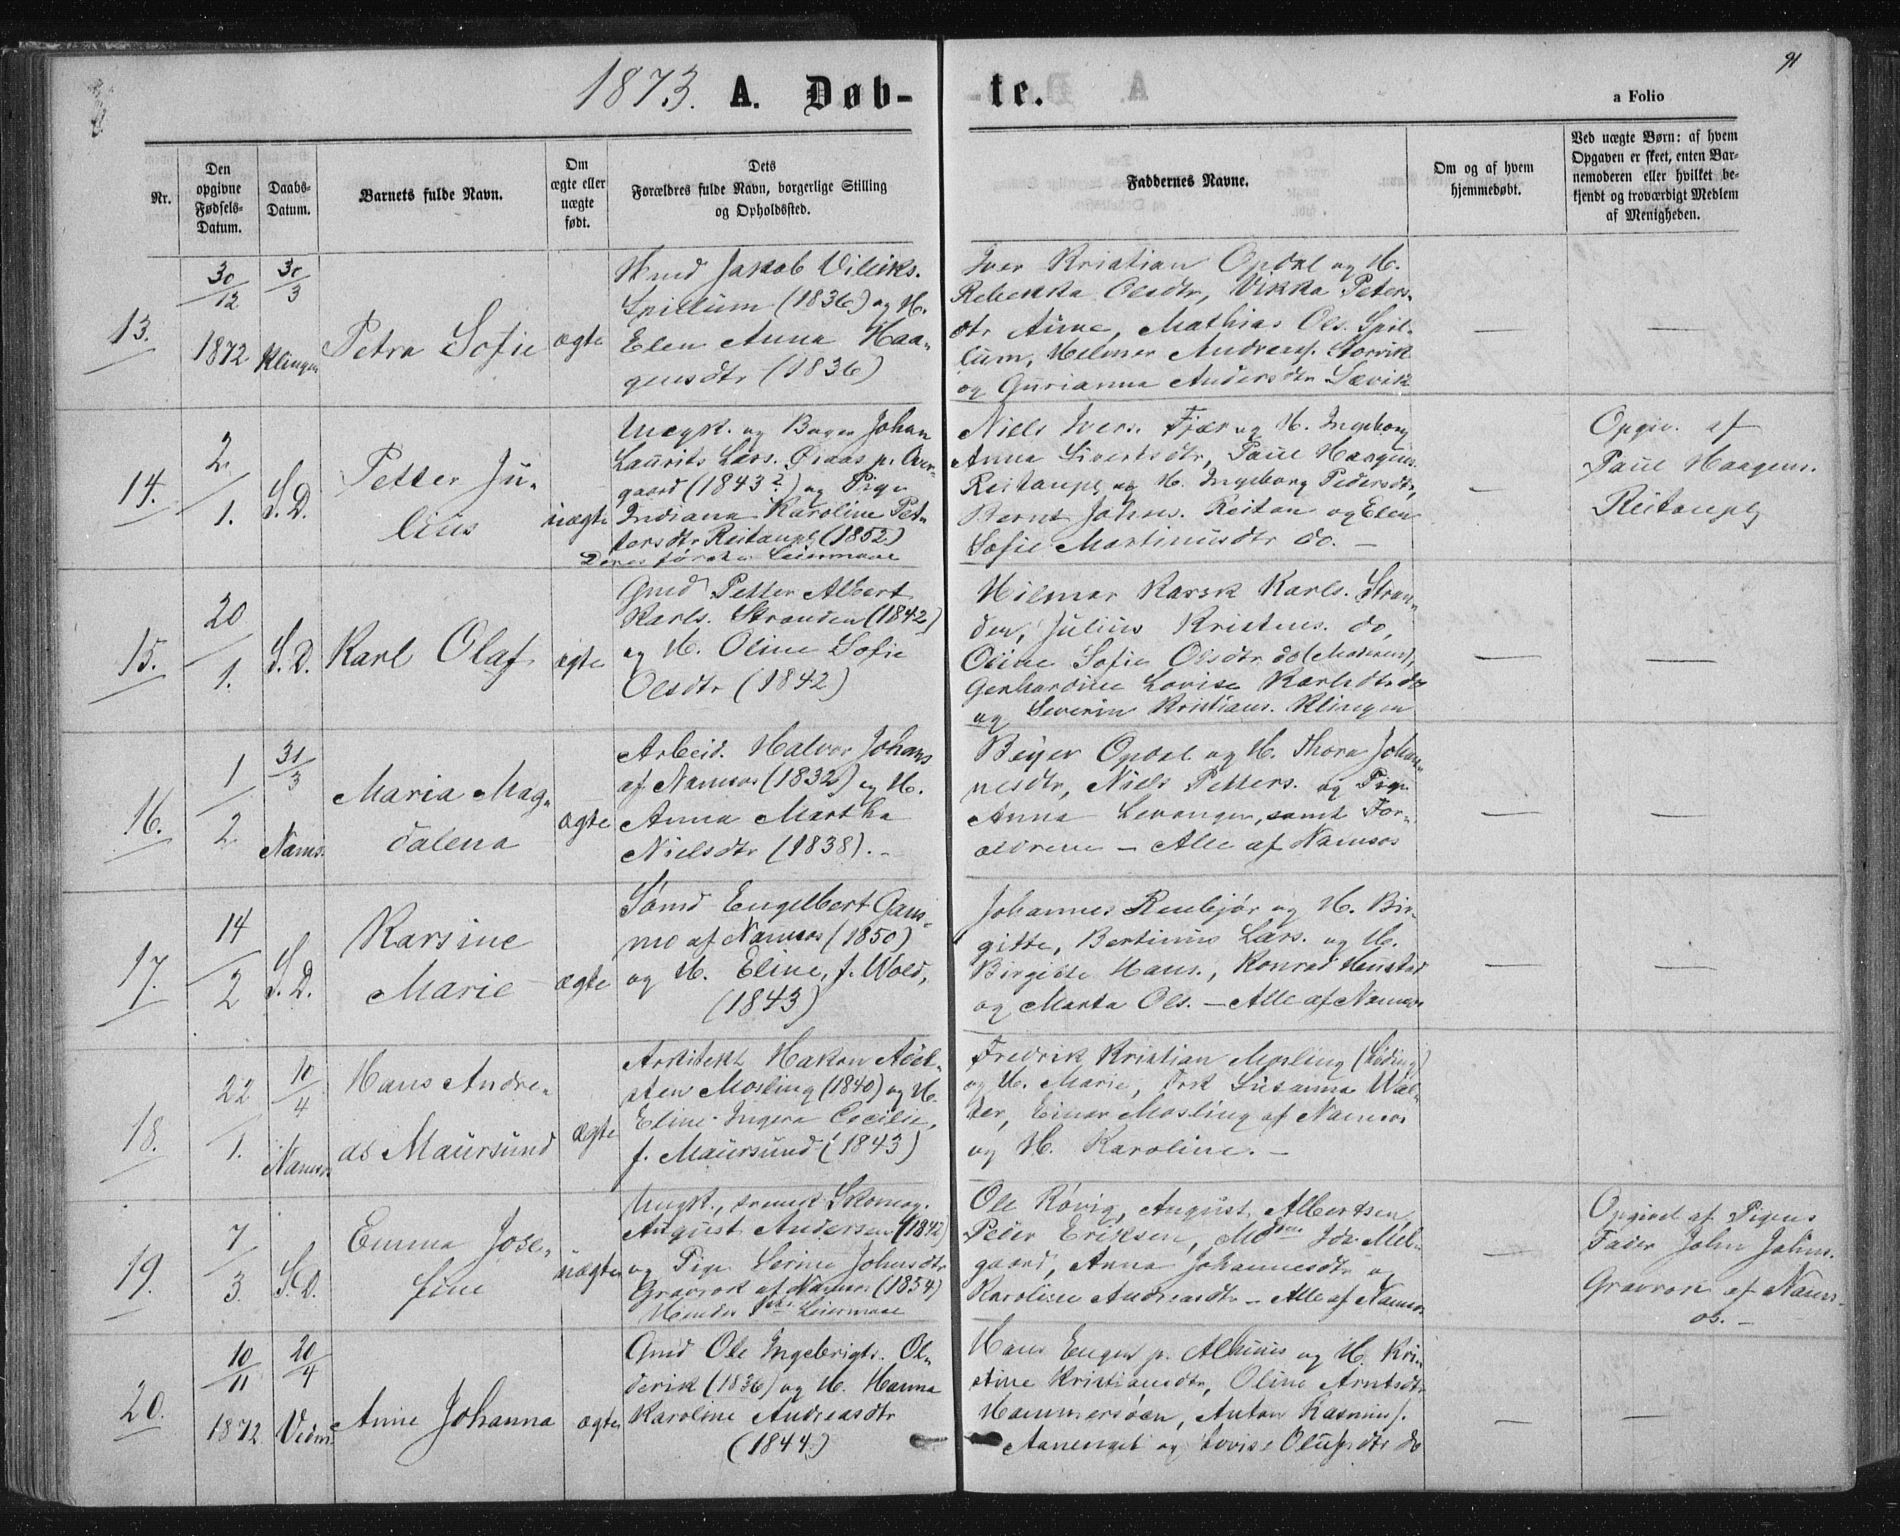 1873. A. Døb- te.
91
a Folio
Nr.
Den opgivne Fødsels-Datum.
Daabs-Datum.
Barnets fulde Navn.
Om ægte eller uægte født.
Dets Forældres fulde Navn, borgerlige Stilling og Opholdssted.
Faddernes Navne.
Om og af hvem hjemmedøbt.
Ved uægte Børn: af hvem Opgaven er skeet, enten Barnemoderen eller hvilket bekjendt og troværdigt Medlem af Menigheden.
13.
30/12 1872
30/3 Klingen
Petra Sofie
ægte
Hmd Jakob Villiks.
Spillum (1836) og H.
Elen Anna Haa-
gensdtr (1836)
Iver Kristian Opdal og H.
Rebekka Olsdtr, Vikka Peters-
dtr Aune, Mathias Ols. Spil-
lum, Helmer Andreas. Storvik
og Gurianna Andersdtr Sævik
—
—
14.
2/1.
S.D.
Petter Ju-
lius
uægte
Ungk. og Bager Johan
Laurits Lars. Øraas p. Over-
gaard (1843?) og Pige
Indiana Karoline Pet-
tersdtr Reitanpl (1852)
Deres første Leiermaal
Niels Ivers. Fjær og H. Ingeborg
Anna Sivertsdtr, Paul Haagens.
Reitanpl og H. Ingeborg Pedersdtr,
Bernt Johns. Reitan og Elen
Sofie Martinusdtr do. —
—
Opgiv. af
Paul Haagens.
Reitanpl
15.
20/1.
S.D.
Karl Olaf
ægte
Gmd Petter Albert
Karls. Stranden (1842)
og H. Oline Sofie
Olsdtr (1842)
Hilmar Karsk Karls. Stran-
den, Julius Kristens. do,
Oline Sofie Olsdtr do (Moderen),
Gerhardine Lovise Karlsdtr do
og Severin Kristians. Klingen
—
—
16.
1/2
31/3 Nams.
Maria Mag-
dalena
ægte
Arbeid. Halvor Johans
af Namsos (1832) og H.
Anna Martha
Nielsdtr (1838). –
Beyer Opdal og H. Thora Johan-
nesdtr, Niels Petters. og Pige
Anna Levanger, samt For-
ældrene — Alle af Namsos
—
—
17.
14/2
S.D.
Karsine
Marie
ægte
Sømd Engelbert Gans-
mo af Namsos (1850)
og H. Eline, f. Wold,
(1843)
Johannes Renbjør og H. Bir-
gitte, Bertinus Lars. og H.
Birgitte Hans., Konrad Hustad
og Marta Ols. — Alle af Namsos
—
—
18.
22/1.
10/4 Namsos
Hans Andre-
as Maursund
ægte
Arkitekt Hakon Adel-
sten Mosling (1840) og H.
Eline Ingera Cecilie,
f. Maursund (1843)
Fredrik Kristian Mosling (Løding)
og H. Marie, Frk Susanna Wal-
der, Einar Mosling af Namsos
og H. Karoline. —
19.
7/3.
S.D.
Emma Jose-
fine
uægte
Ungk., svensk Skomag.
August Andersen (1842)
og Pige Serine Johnsdtr
Gravrok af Namsos (1854)
Hendes 1ste Leiermaal
Ole Røvig, August Albertsen
Peder Eriksen, Mdme Jør. Mel-
gaard, Anna Johannesdtr og
Karoline Andreasdtr — Alle af Namsos
—
Opgivet af Pigens
Fader John Johns.
Gravrok af Nams-
os. —
20.
10/11 1872
20/4 Vedm.
Anne Johanna
ægte
Gmd Ole Ingebrigts. Ol-
derik (1836) og H. Hanna
Karoline Andreasdtr
(1844)
Hans Enges p. Alhuus og H. Kri-
stine Kristiansdtr, Oline Arntsdtr
Hammersøen, Anton Rasmus.
Aanenget og Lovise Olufsdtr do
—
—